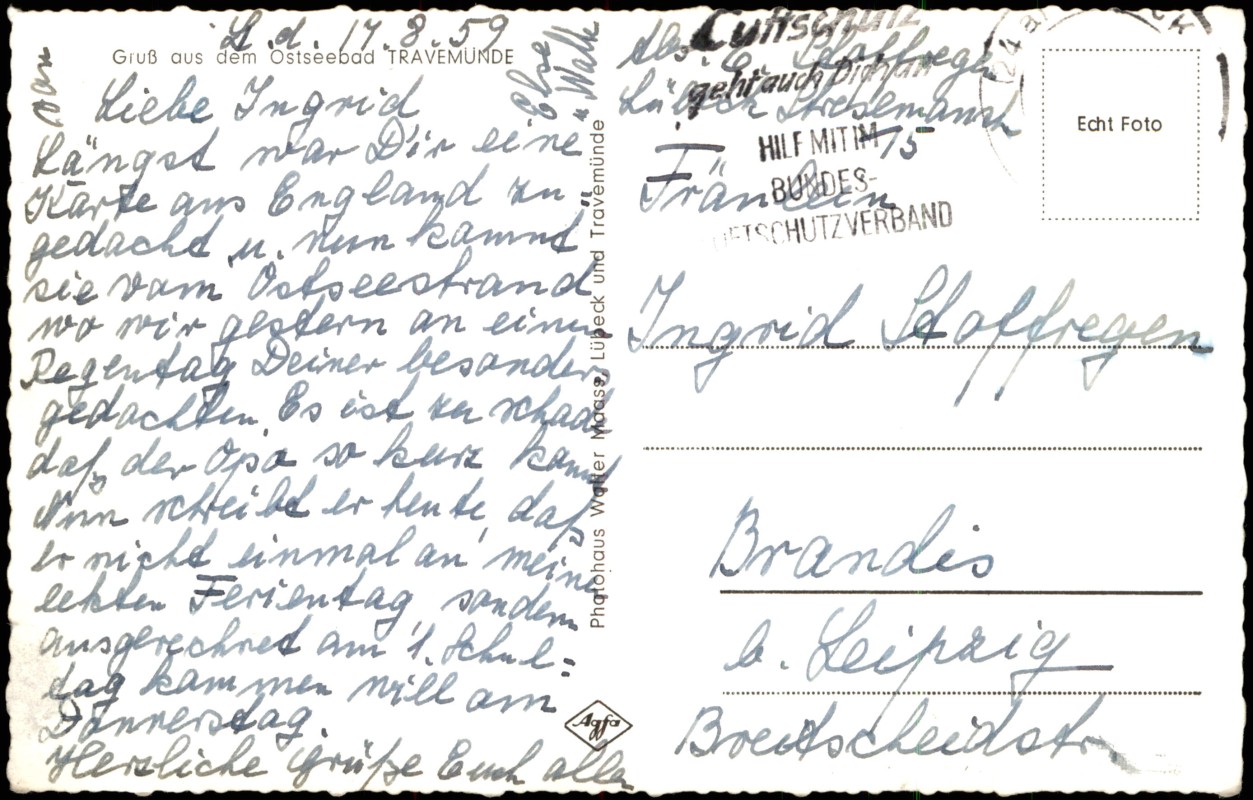 L. d. 17.8.59
Gruß aus dem Ostseebad TRAVEMÜNDE
Liebe Ingrid
Längst war Dir eine
Karte aus England zu
gedacht u. nun kommt
sie vom Ostseestrand
wo wir gestern an einem
Regentag Deiner besonders
gedachten. Es ist zu schade
daß der Opa so kurz kommt
Nun schreibt er heute, daß
er nicht einmal an meinem
letzten Ferientag, sondern
ausgerechnet am 1. Schul=
tag kommen will am
Donnerstag.
Herzliche Grüße Euch allen
von
Else
u. Walter
Photohaus Walter Maass, Lübeck und Travemünde
Agfa
Abs. E. Stoffregen
Lübeck Stresemannstr
75
Luftschutz
geht auch Dich an
HILF MIT IM
BUNDES-
LUFTSCHUTZVERBAND
Echt Foto
Fräulein
Ingrid Stoffregen
Brandis
b. Leipzig
Breitscheidstr.